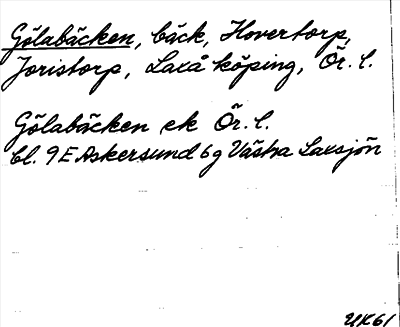 Gölabäcken, bäck, Hovertorp,
Joristorp, Laxå köping, Ör. l.
Gölabäcken ek Ör. l.
bl. 9E Askersund 6g Västra Laxsjön
UK61